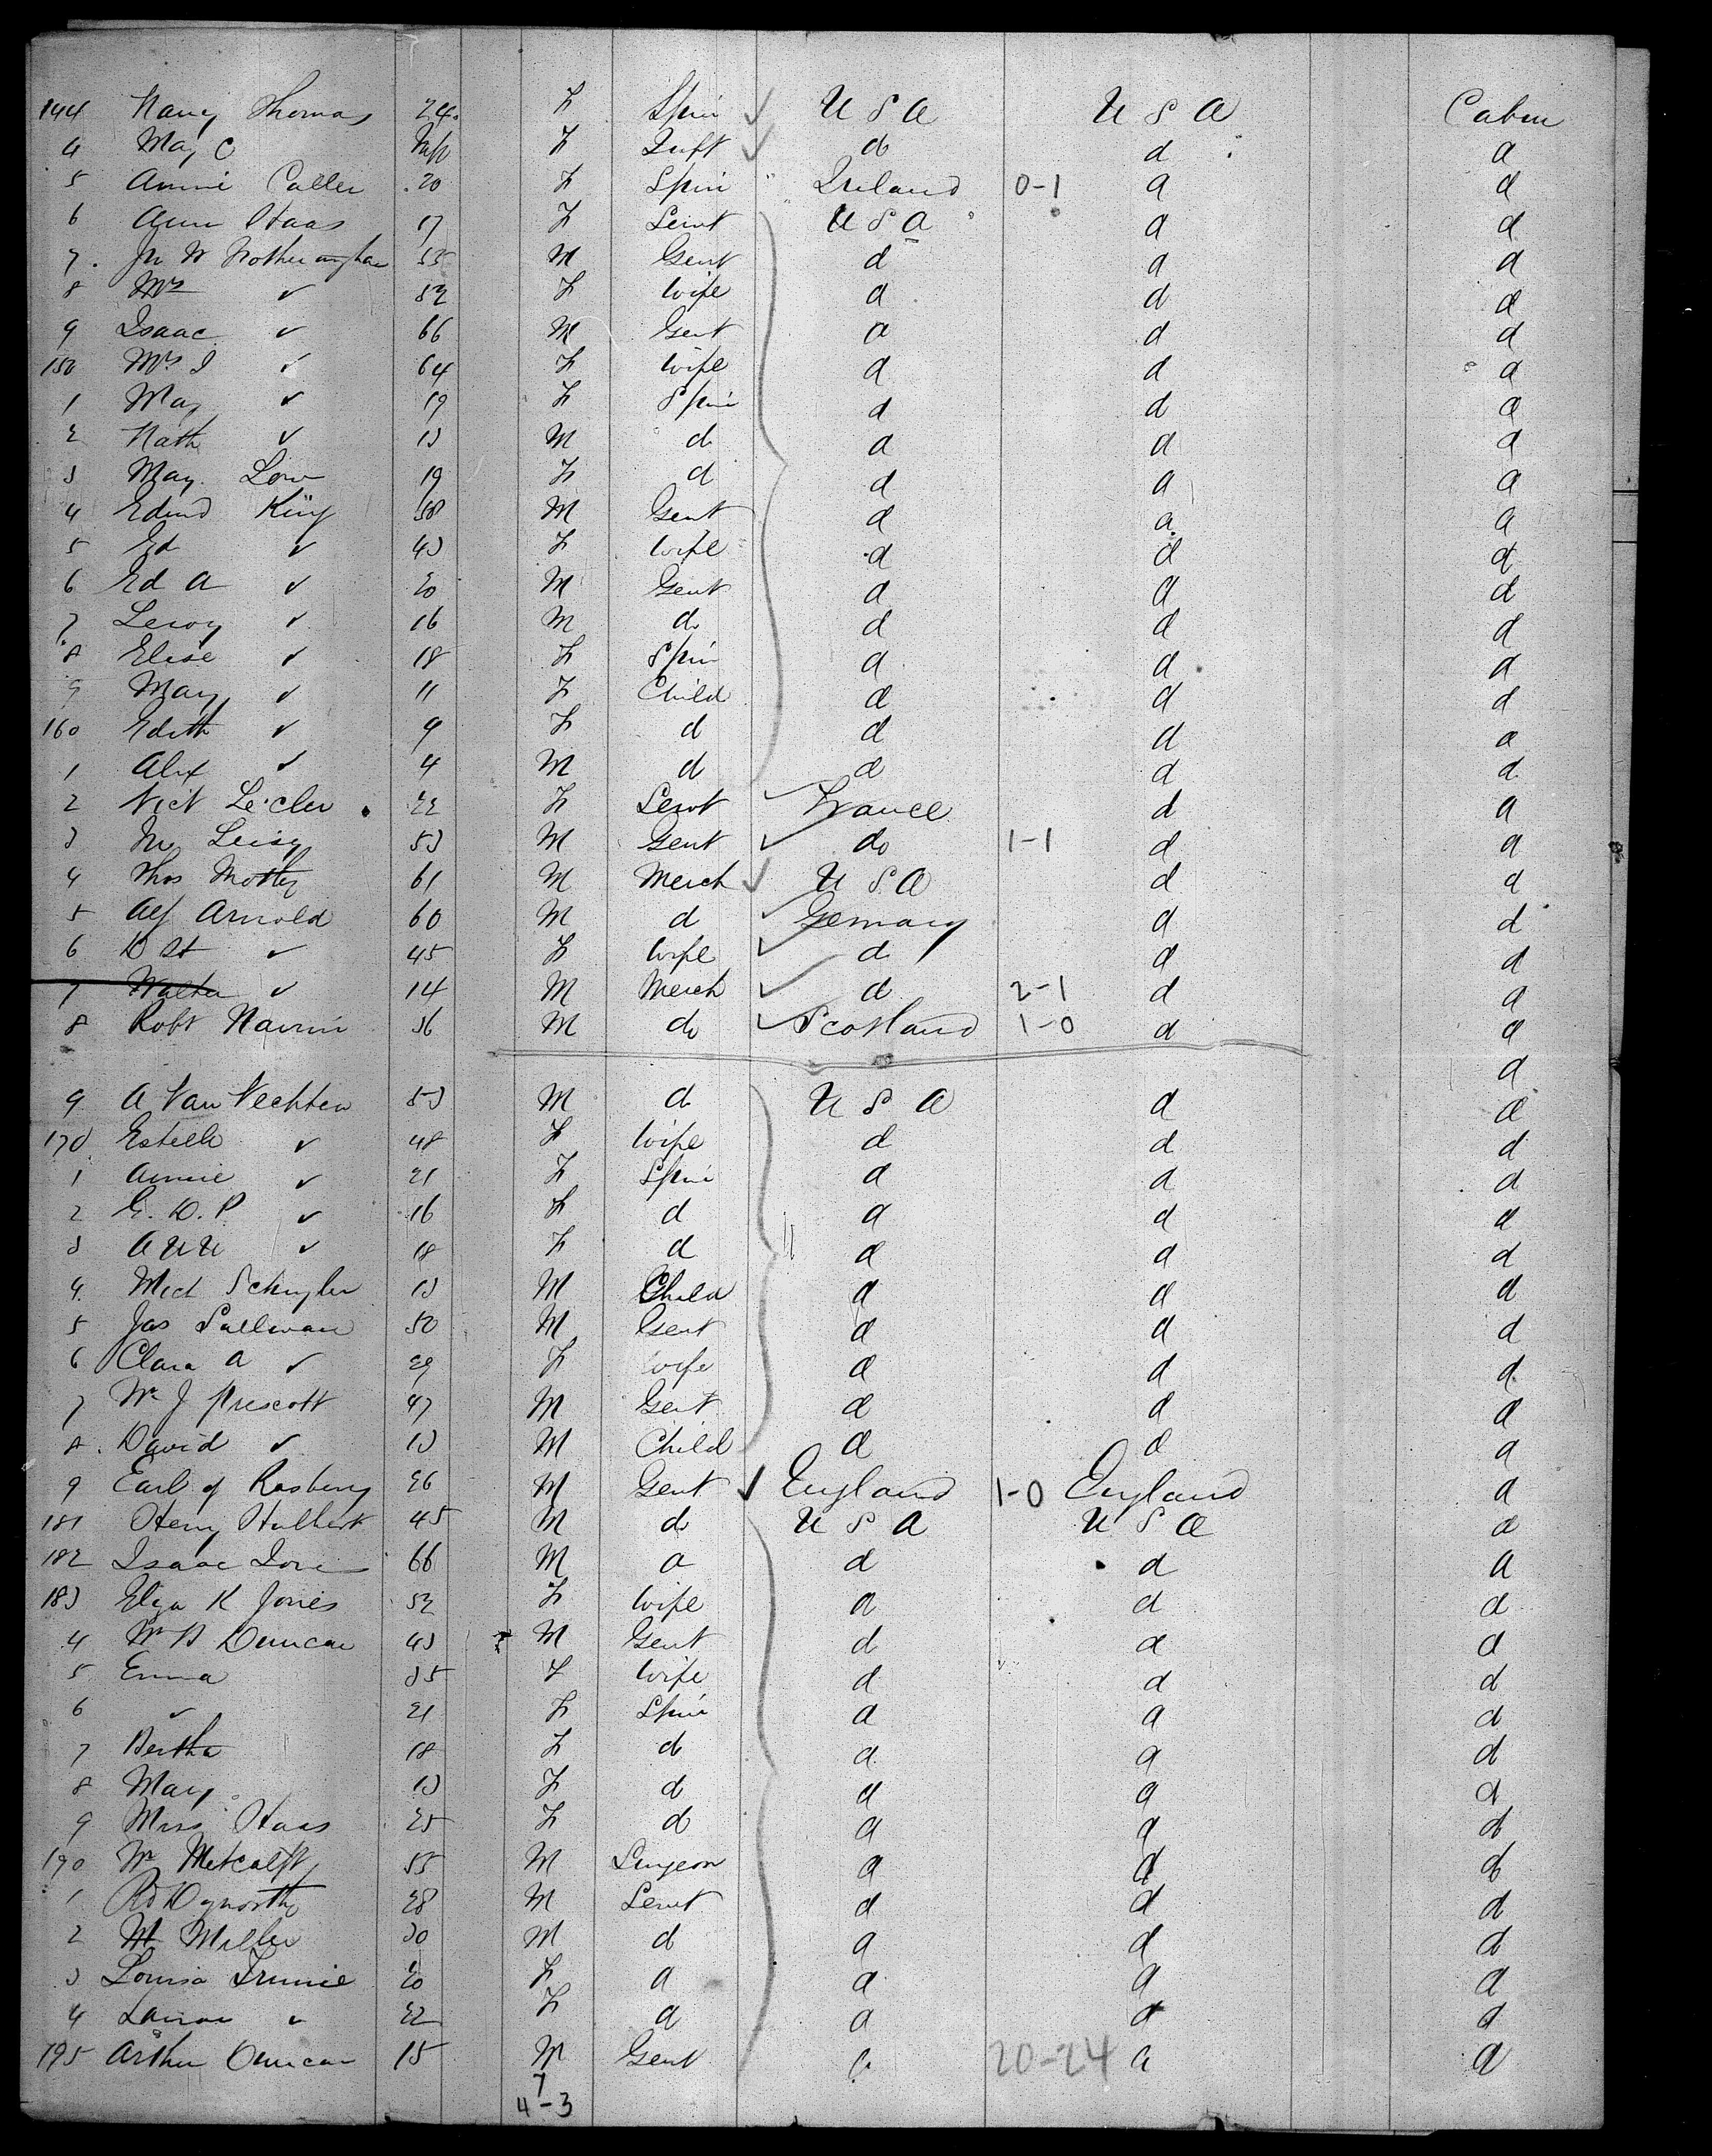 144 Nancy Thomas 24 F Spin U S A U S A Cabin
4 May C Inft F Inft do d d
5 Annie Caller 20 F Spin Ireland 0-1 d d
6 Ann Haas 17 F Servt U S A d d
7 Jn W 55 M Gent d d d
8 Mrs ✓ 52 F Wife d d d
9 Isaac ✓ 66 M Gent d d d
150 Mrs I ✓ 64 F Wife d d d
1 May ✓ 19 F Spin d d d
2 Nath ✓ 13 M d d d d
3 May Low 19 F d d d d
4 Edmd King 58 M Gent d d d
5 Ed ✓ 43 F Wife d d d
6 Ed A ✓ 20 M Gent d d d
7 Leroy ✓ 16 M do d d d
8 Elise ✓ 18 F Spin d d d
9 Mary ✓ 11 F Child d d d
160 Edith ✓ 9 F d d d d
1 Alex ✓ 4 M d d d d
2 Vict Lecler 22 F Servt France d d
3 53 M Gent do 1-1 d d
4 Thos Mottey 61 M Merch U S A d d
5 Alf Arnold 60 M d Germany d d
6 ✓ 45 F Wife d d d
7 Walter ✓ 14 M Merch d 2-1 d d
8 Robt 36 M do Scotland 1-0 d d
d
9 A Van Vechten 53 M d U S A d d
170 Estelle ✓ 48 F Wife d d d
1 Annie ✓ 21 F Spin d d d
2 G. D. P. ✓ 16 F d d d d
3 ✓ 18 F d d d d
4 Schuyler 13 M Child d d d
5 Jas Sullivan 50 M Gent d d d
6 Clara A ✓ 29 F Wife d d d
7 Wm J Prescott 47 M Gent d d d
8 David ✓ 13 M Child d d d
9 Earl of Rosbery 26 M Gent England 1-0 England d
181 Henry Hulbert 45 M do U S A U S A d
182 Isaac 66 M d d d d
183 Eliza K Jones 52 F Wife d d d
4 Wm B Duncan 43 M Gent d d d
5 Emma 35 F Wife d d d
6 ✓ 21 F Spin d d d
7 Bertha 18 F d d d d
8 Mary 13 F d d d d
9 Miss Haas 25 F d d d d
190 Wm Metcalft 55 M Surgeon d d d
1 Rd 28 M Servt d d d
2 M Miller 30 M d d d d
3 Louisa 20 F d d d d
4 ✓ 22 F d d d d
195 Arthur Duncan 15 M Gent d 20-24 d d
7
4-3